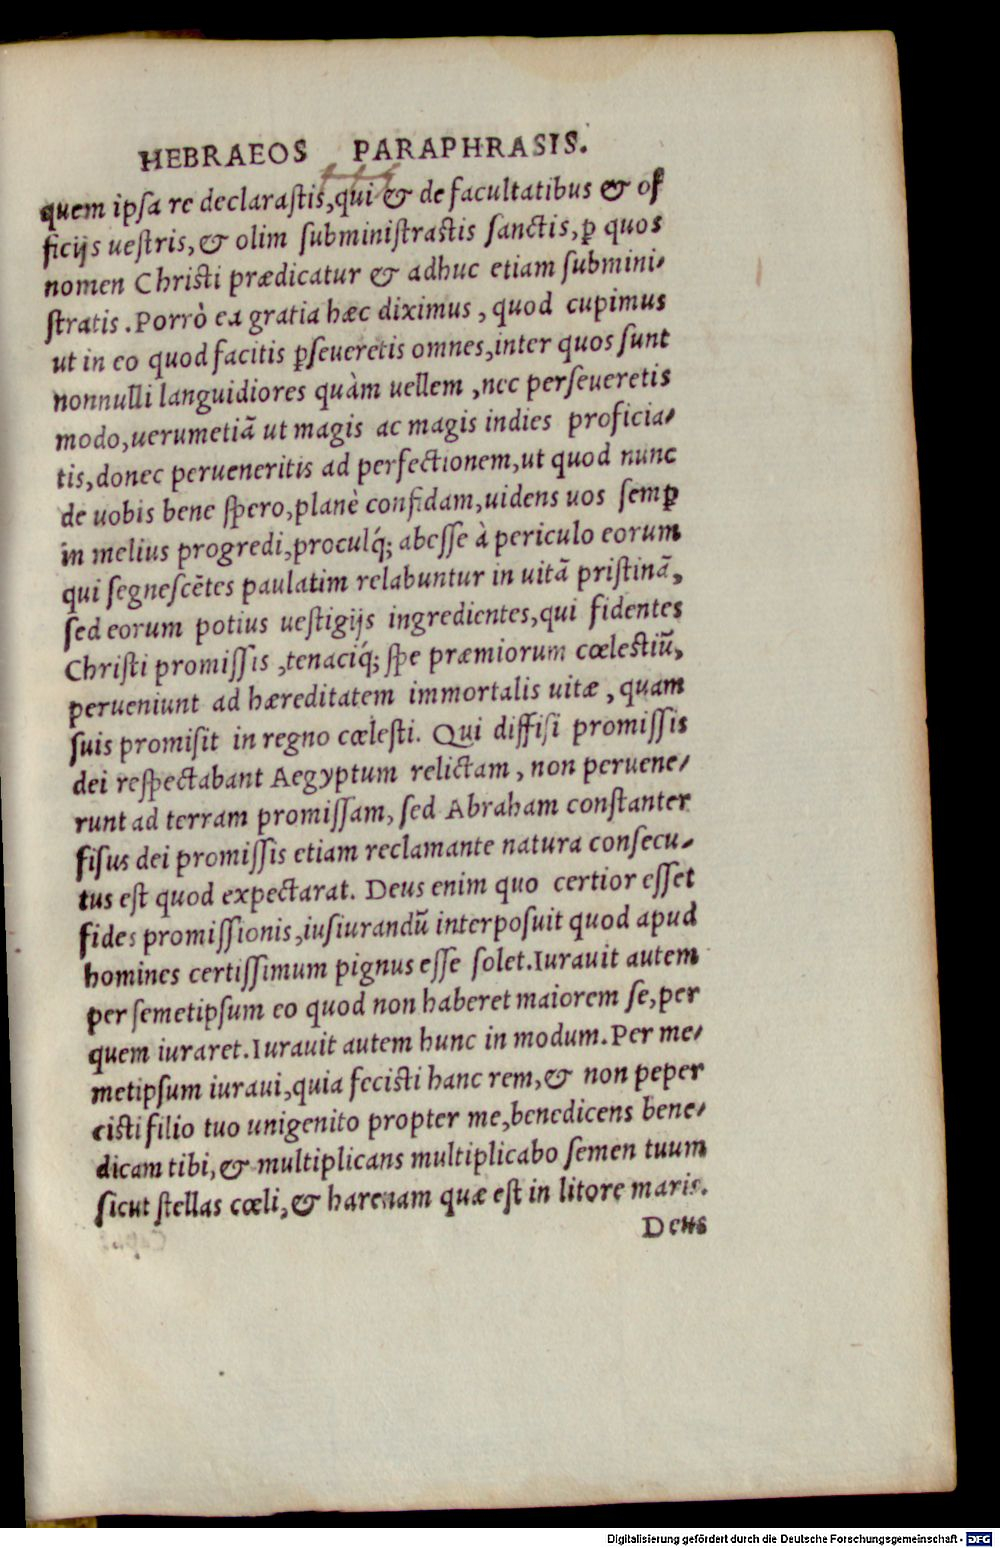 HEBRAEOS PARAPHRASIS.
quem ipſa re declaraſtis, qui & de facultatibus & of
ficijs ueſtris, & olim ſubminiſtraſtis ſanctis, ꝑ quos
nomen Chriſti prædicatur & adhuc etiam ſubmini⸗
ſtratis. Porrò ea gratia hæc diximus, quod cupimus
ut in eo quod facitis ꝑſeueretis omnes, inter quos ſunt
nonnulli languidiores quàm uellem, nec perſeueretis
modo, uerumetiã ut magis ac magis indies proficia⸗
tis, donec perueneritis ad perfectionem, ut quod nunc
de uobis bene ſpero, planè confidam, uidens uos ſemꝑ
in melius progredi, proculq́; abeſſe à periculo eorum
qui ſegneſcẽtes paulatim relabuntur in uitã priſtinã,
ſed eorum potius ueſtigijs ingredientes, qui fidentes
Chriſti promiſſis, tenaciq́; ſpe præmiorum cœleſtiũ,
perueniunt ad hæreditatem immortalis uitæ, quam
ſuis promiſit in regno cœleſti. Qui diffiſi promiſſis
dei reſpectabant Aegyptum relictam, non peruene⸗
runt ad terram promiſſam, ſed Abraham conſtanter
fiſus dei promiſſis etiam reclamante natura conſecu⸗
tus eſt quod expectarat. Deus enim quo certior eſſet
fides promiſſionis, iuſiurandũ interpoſuit quod apud
homines certiſſimum pignus eſſe ſolet. Iurauit autem
per ſemetipſum eo quod non haberet maiorem ſe, per
quem iuraret. Iurauit autem hunc in modum. Per me⸗
metipſum iuraui, quia feciſti hanc rem, & non peper
ciſti filio tuo unigenito propter me, benedicens bene⸗
dicam tibi, & multiplicans multiplicabo ſemen tuum
ſicut ſtellas cœli, & harenam quæ eſt in litore maris.
Deus
Digitalisierung gefördert durch die Deutsche Forschungsgemeinschaft - DFG